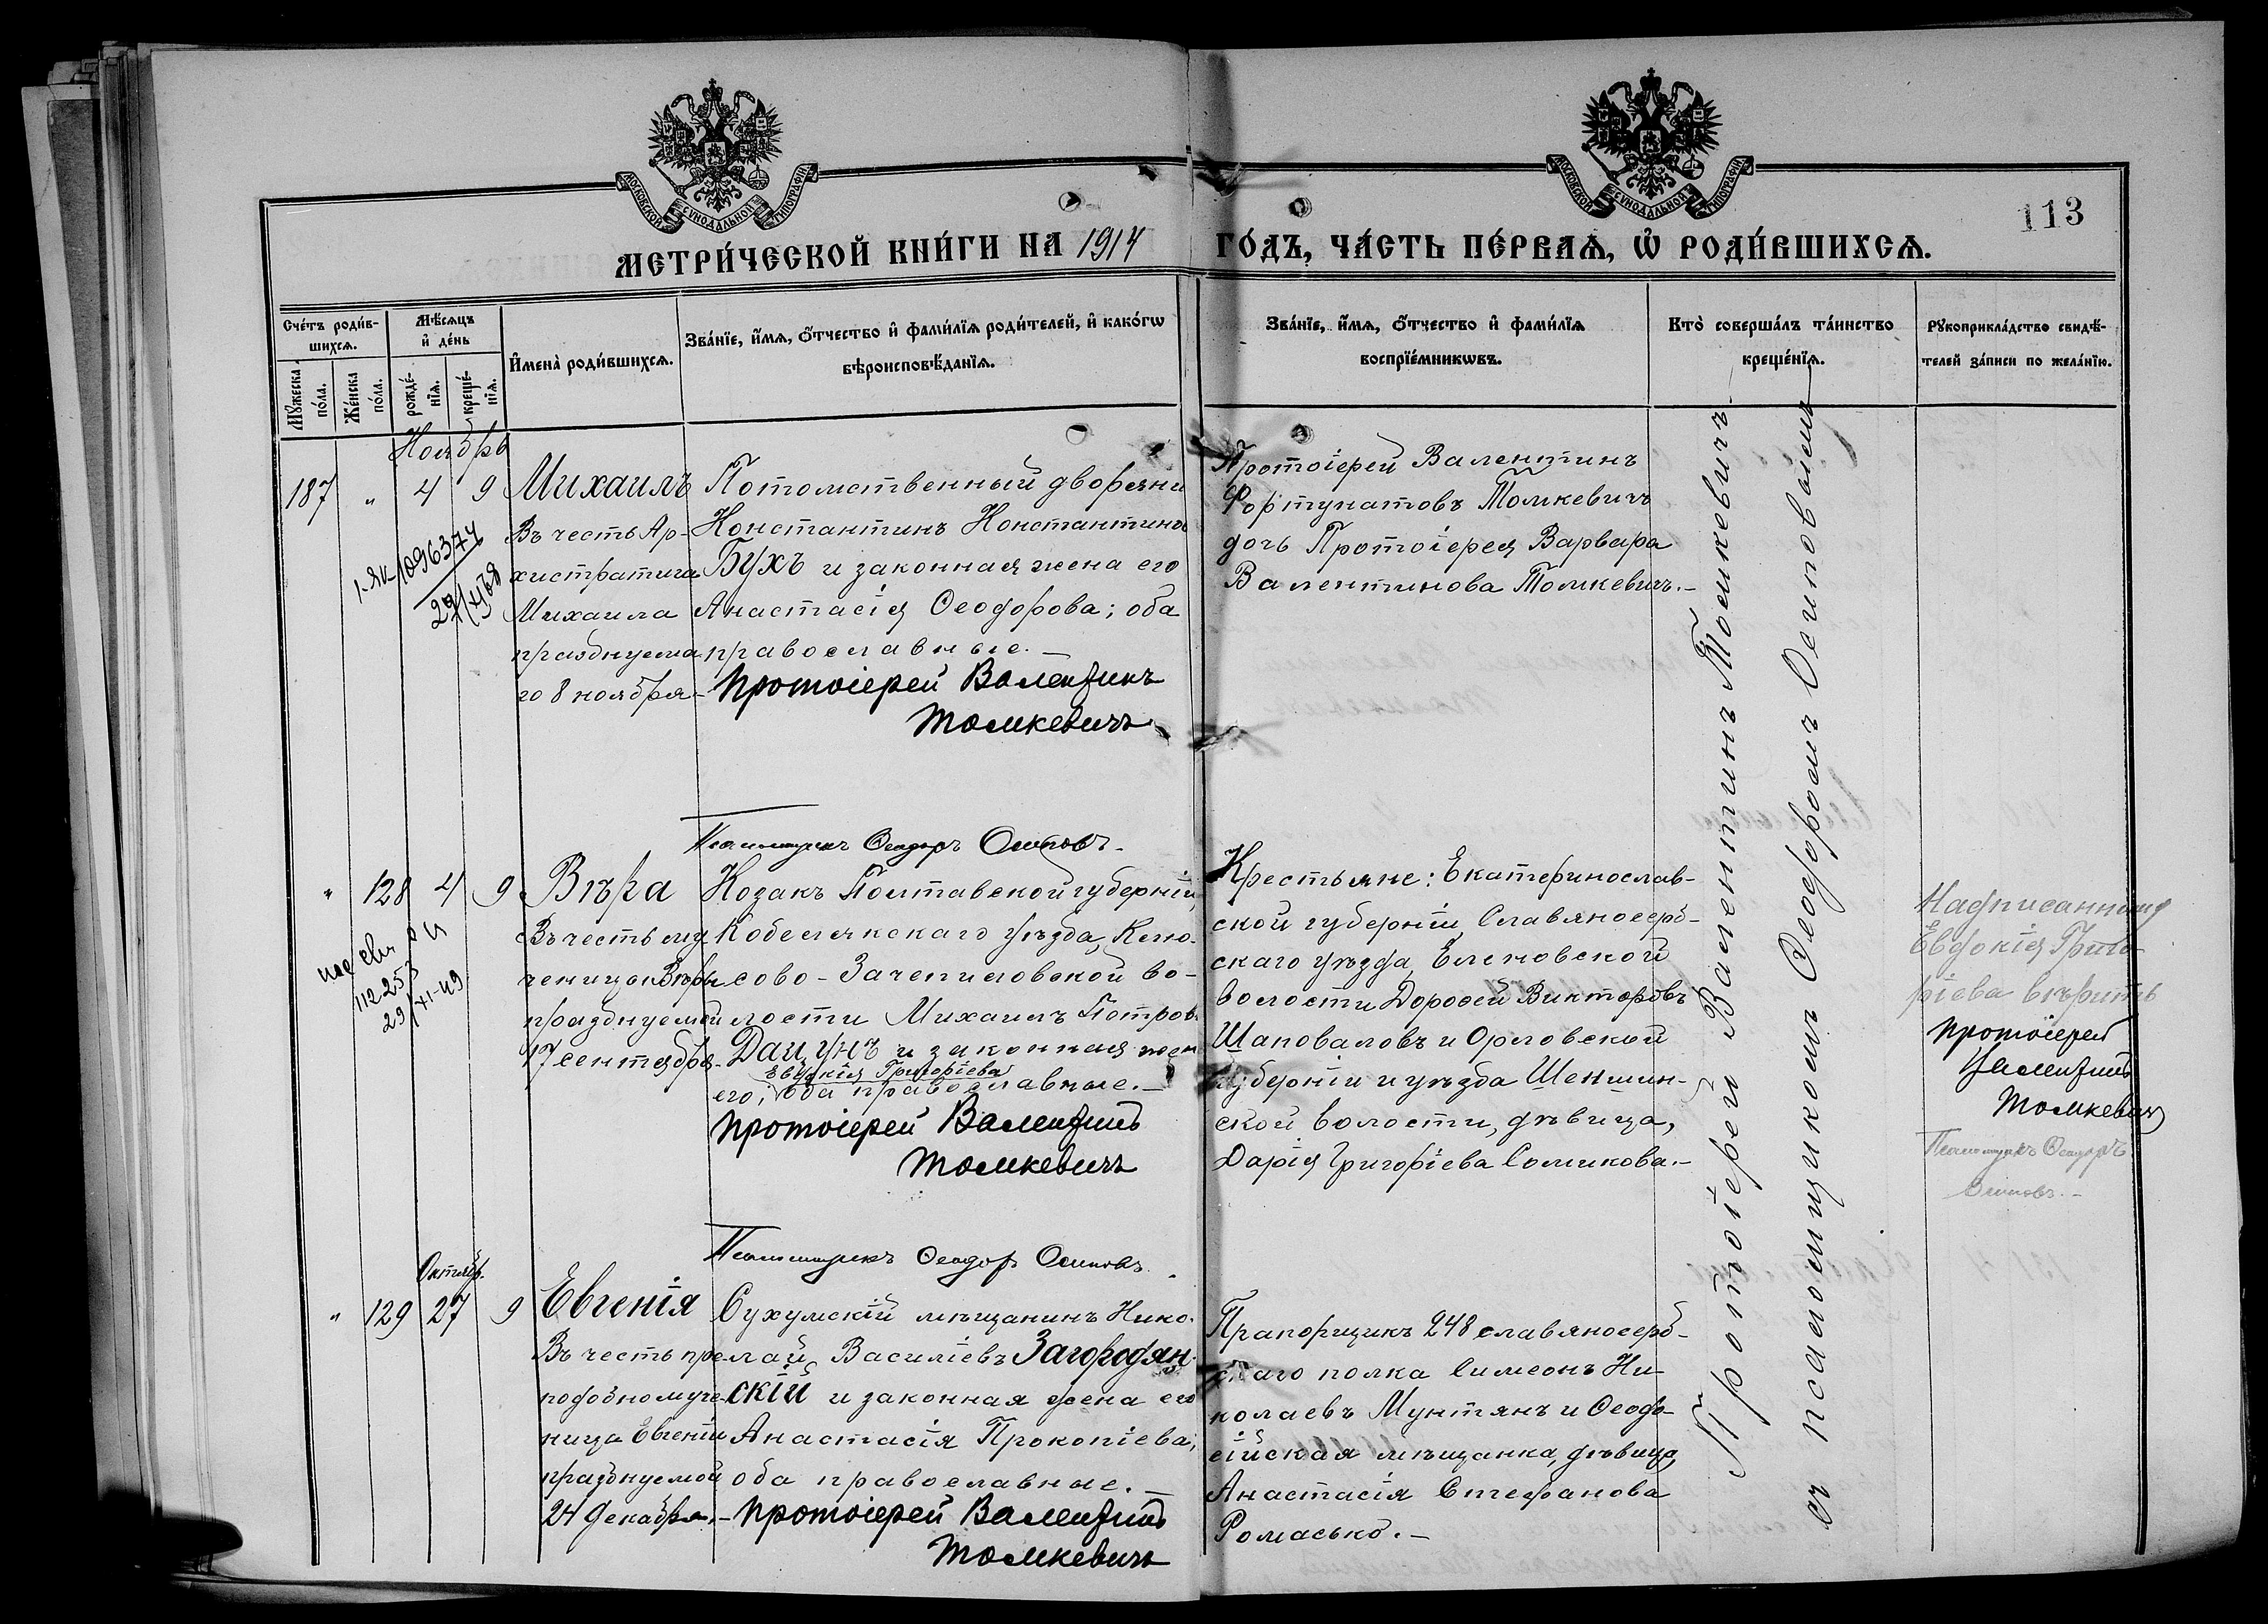 МОСКОВСКОЙ СѴНОДАЛЬНОЙ ТИПОГРАФІИ
МОСКОВСКОЙ СѴНОДАЛЬНОЙ ТИПОГРАФІИ
113
МЕТРИ́ЧЕСКОЙ КНИ́ГИ НА 1914 ГО́ДЪ, ЧА́СТЬ ПЕ́РВАѦ, Ѡ҆ РОДИ́ВШИХСѦ.
Сче́тъ роди́в-
шихсѧ.
Мѣ́сѧцъ
и҆ де́нь
Мꙋ́жеска
по́ла.
Же́нска
по́ла.
рожде́-
нїѧ.
креще́-
нїѧ.
И҆мена̀ роди́вшихсѧ.
Зва́нїе, и҆́мѧ, ѻ҆́тчество и҆ фами́лїѧ роди́телей, и҆ како́гѡ
вѣроисповѣ́данїѧ.
Зва́нїе, и҆́мѧ, ѻ҆́тчество и҆ фами́лїѧ
воспрїе́мникѡвъ.
Кто̀ соверша́лъ та́инство
креще́нїѧ.
Рꙋкоприкла́дство свидѣ́-
телей за́писи по жела́нїю.
Ноябрь
187 " 4 9
1096374
Михаилъ
Въ честь Ар-
хистратига
Михаила
празднуема
го 8 ноября.-
Потомственный дворянин
Константинъ Константиновъ
Бухъ и законная жена его
Анастасія Ѳеодорова; оба
православные.-
Протоіерей Валентинъ
Томкевичъ.
Псаломщикъ Ѳеодоръ Осиповъ.
Протоіерей Валентинъ
Фортунатовъ Томкевичъ
дочь Протоіерея Варвара
Валентинова Томкевичъ.-
Протоіерей Валентинъ Томкевичъ
съ псаломщикомъ Ѳеодоромъ Осиповымъ
" 128 4 9
112253
29/XI-49
Вѣра
Въ честь му-
ченицы Вѣры
празднуемой
17 сентября.-
Козакъ Полтавской губерніи,
Кобелякскаго уѣзда, Кело-
сово-Зачепиловской во-
лости Михаилъ Петровъ
Дацунъ и законная жена
Евдокія Григоріева
его; оба православные.-
Протоіерей Валентинъ
Томкевичъ
Псаломщикъ Ѳеодоръ Осиповъ.
Крестьяне: Екатеринослав-
ской губерніи, Славяносерб-
скаго уѣзда, Еленовской
волости Дороѳей Викторовъ
Шаповаловъ и Орловской
губерніи и уѣзда Шеншин-
ской волости, дѣвица,
Дарія Григоріева Сомикова.-
Надписанному
Евдокія Григо-
ріева вѣрить
Протоіерей
Валентинъ
Томкевичъ
Псаломщикъ Ѳеодоръ
Осиповъ.-
Октябр.
" 129 27 9
Евгенія
Въ честь пре-
подобномуче-
ницы Евгеніи
празднуемой
24 декабря.-
Сухумскій мѣщанинъ Нико-
лай Василіевъ Загородян-
скій и законная жена его
Анастасія Прокопіева;
оба православные.-
Протоіерей Валентинъ
Томкевичъ
Прапорщикъ 248 славяносерб-
скаго полка Симеонъ Ни-
колаевъ Мунтянъ и Ѳеодо-
сійская мѣщанка, дѣвица,
Анастасія Стефанова
Ромасько.-